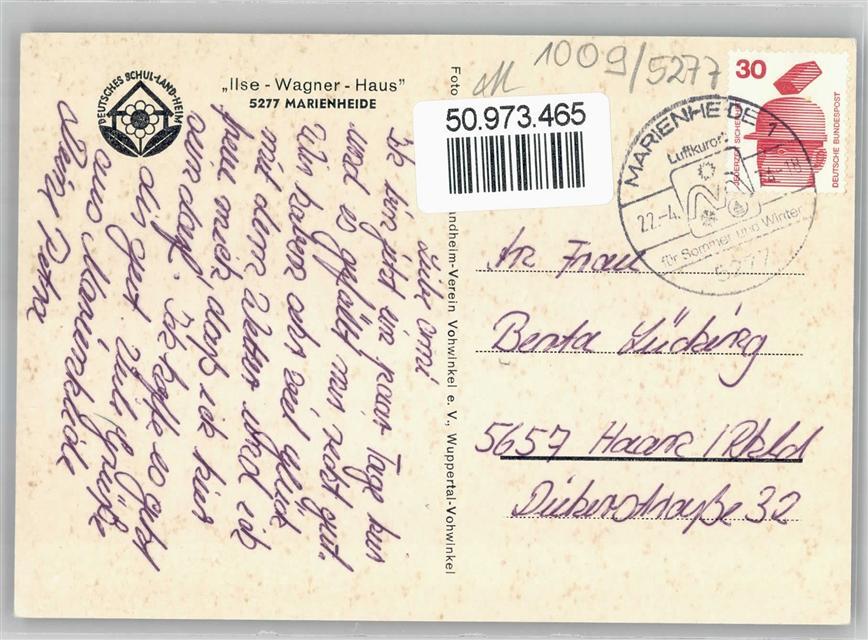 DEUTSCHES SCHUL-LAND-HEIM
„Ilse - Wagner - Haus"
5277 MARIENHEIDE
Foto
andheim-Verein Vohwinkel e. V., Wuppertal-Vohwinkel
1009/5277
50.973.465
30
JEDERZEIT SICHERHEIT
DEUTSCHE BUNDESPOST
MARIENHEIDE 1
Luftkurort
22.-4.
für Sommer und Winter
5277
Liebe Omi
Ich bin jetzt ein paar Tage hier
und es gefällt mir recht gut.
Wir haben sehr viel Glück
mit dem Wetter und ich
freue mich daß ich hier
sein darf. Ich hoffe es geht
dir gut. Viele Grüße
aus Marienheide
Deine Petra
An Frau
Berta Lücking
5657 Haan / Rhld
Dieker Straße 32